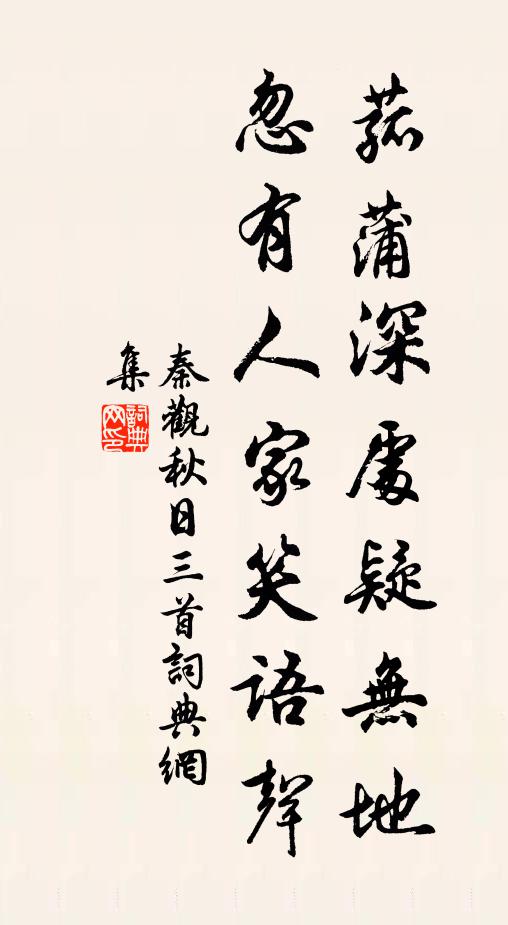 菰蒲深處疑無地
忽有人家笑語聲
秦觀秋日三首詞典網
集
詞典
网印